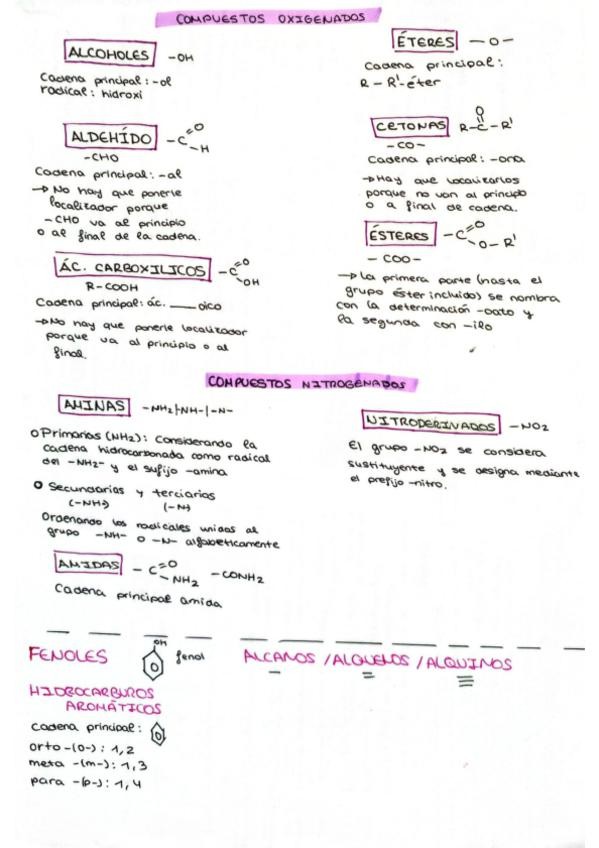 COMPUESTOS OXIGENADOS
ALCOHOLES -OH
Cadena principal: -ol
radical: hidroxi
ÉTERES -O-
Cadena principal:
R - R'-éter
ALDEHÍDO -C=O -H
-CHO
Cadena principal: -al
→ No hay que ponerle
localizador porque
-CHO va al principio
o al final de la cadena.
CETONAS R-C-R' O
-CO-
Cadena principal: -ona
→ Hay que localizarlos
porque no van al principio
o a final de cadena.
ÁC. CARBOXILICOS -C=O OH
R-COOH
Cadena principal: ác. ____ oico
→ No hay que ponerle localizador
porque va al principio o al
final.
ÉSTERES -C=O O-R'
- COO-
→ La primera parte (hasta el
grupo éster incluido) se nombra
con la determinación -oato y
la segunda con -ilo
COMPUESTOS NITROGENADOS
AMINAS -NH2|-NH-|-N-
O Primarias (NH2): Considerando la
cadena hidrocarbonada como radical
del -NH2- y el sufijo -amina
O Secundarias y terciarias
(-NH-) (-N-)
Ordenando los radicales unidos al
grupo -NH- o -N- alfabéticamente
AMIDAS -C=O NH2 -CONH2
Cadena principal amida
NITRODERIVADOS -NO2
El grupo -NO2 se considera
sustituyente y se designa mediante
el prefijo -nitro.
FENOLES OH fenol
ALCANOS / ALQUENOS / ALQUINOS
HIDROCARBUROS
AROMÁTICOS
Cadena principal:
orto -(o-): 1,2
meta -(m-): 1,3
para -(p-): 1,4